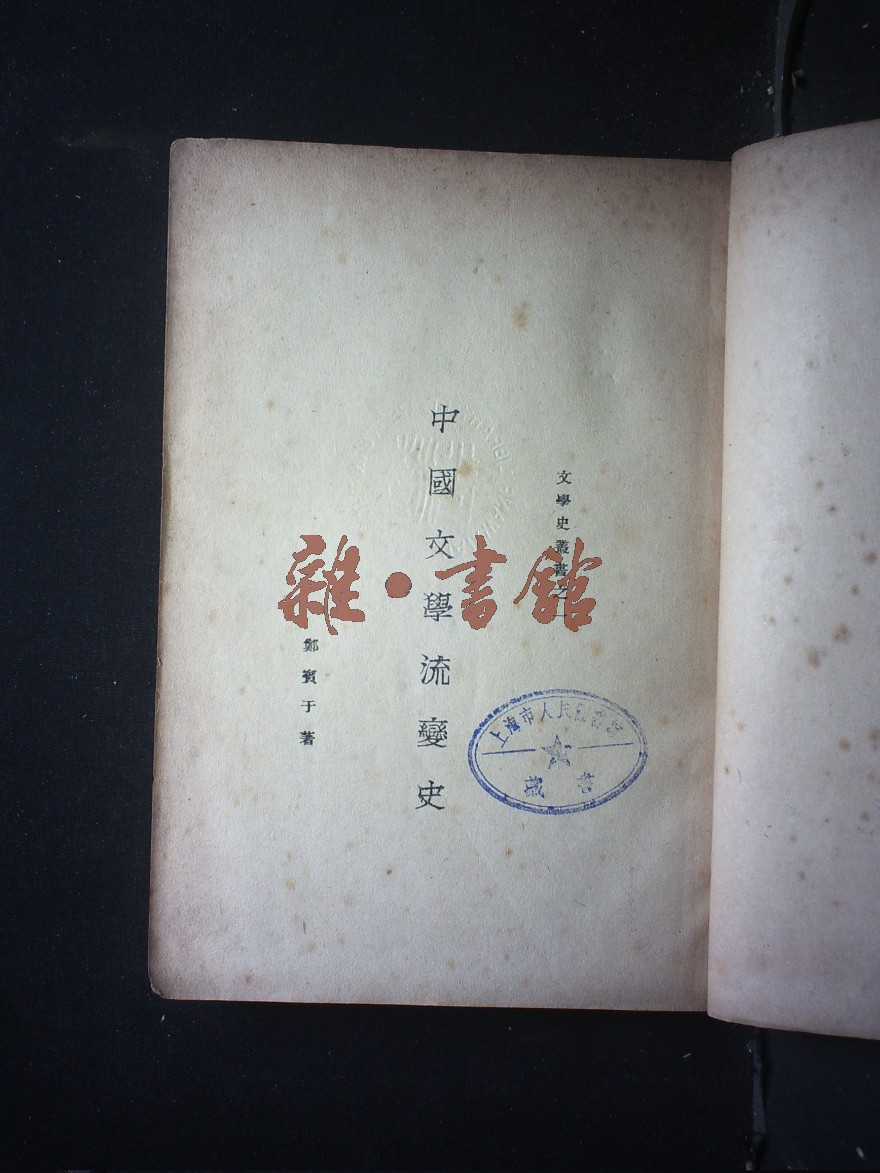 文學史叢書之一
中國文學流變史
鄭賓于著
雜·書館
上海市人民圖書館
藏書